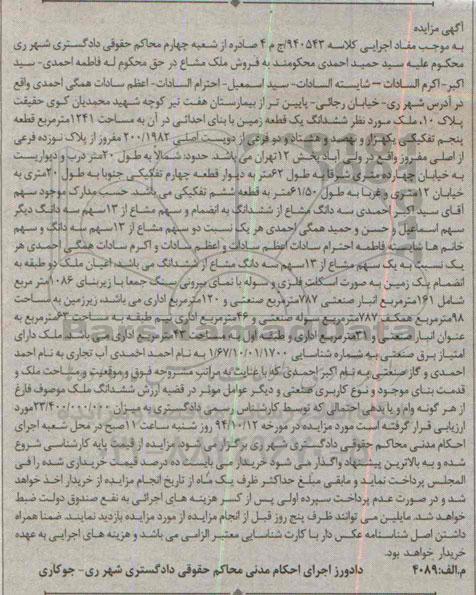 آگهی مزایده
به موجب مفاد اجرایی کلاسه ۹۴۰۵۴۳/ج م ۴ صادره از شعبه چهارم محاکم حقوقی دادگستری شهر ری
محکوم علیه سید حمید احمدی محکومند به فروش ملک مشاع در حق محکوم له فاطمه احمدی- سید
اکبر- اکرم السادات - شایسته السادات- سید اسمعیل- احترام السادات- اعظم سادات همگی احمدی واقع
در آدرس شهر ری- خیابان رجائی- پایین تر از بیمارستان هفت تیر کوچه شهید محمدیان کوی حقیقت
پلاک ۱۰، ملک مورد نظر ششدانگ یک قطعه زمین با بنای احداثی در آن به مساحت ۱۲۴۱مترمربع قطعه
پنجم تفکیکی یکهزار و نهصد و هشتاد و دو فرعی از دویست اصلی ۲۰۰/۱۹۸۲ مفروز از پلاک نوزده فرعی
از اصلی مفروز واقع در ولی آباد بخش ۱۲تهران می باشد. حدود: شمالاً به طول ۲۰متر درب و دیواریست
به خیابان چهارده متری شرقاً به طول ۶۲متر به دیوار قطعه چهارم تفکیکی جنوبا به طول ۲۰متری به
خیابان ۱۲متری و غربا به طول ۶۱/۵۰متر به قطعه ششم تفکیکی می باشد. حسب مدارک موجود سهم
آقای سید اکبر احمدی سه دانگ مشاع از ششدانگ به انضمام و سهم مشاع از ۱۳سهم سه دانگ دیگر
سهم اسماعیل و حسن و حمید همگی احمدی هر یک نسبت دو سهم مشاع از ۱۳سهم سه دانگ و سهم
خانم ها شایسته فاطمه احترام سادات اعظم سادات و اعظم سادات و اکرم سادات همگی احمدی هر
یک نسبت به یک سهم مشاع از ۱۳سهم سه دانگ مشاع از ششدانگ می باشد، اعیان ملک دو طبقه به
انضمام یک زمین به صورت اسکلت فلزی و سوله با نمای بیرونی سنگ جمعا با زیربنای ۱۰۸۶متر مربع
شامل ۱۶۱مترمربع انبار صنعتی ۷۸۷مترمربع صنعتی و ۱۲۰مترمربع اداری می باشد، زیرزمین به مساحت
۹۸مترمربع همکف ۷۸۷مترمربع سوله صنعتی و ۴۶مترمربع اداری نیم طبقه به مساحت ۶۳مترمربع به
عنوان انبار صنعتی و ۳۱مترمربع اداری و طبقه اول به مساحت ۴۳مترمربع اداری می باشد ملک دارای
امتیاز برق صنعتی به شماره شناسایی ۱/۶۷/۱۰/۰۱/۱۷۰۰ به نام احمد احمدی آب تجاری به نام احمد
احمدی و گاز صنعتی به نام اکبر احمدی که با عنایت به مراتب مشروحه فوق و موقعیت و مساحت ملک و
قدمت بنای موجود و نوع کاربری صنعتی و دیگر عوامل موثر در قضیه ارزش ششدانگ ملک موصوف فارغ
از هر گونه وام و یا بدهی احتمالی که توسط کارشناس رسمی دادگستری به میزان ۲۳/۴۰۰/۰۰۰/۰۰۰مورد
ارزیابی قرار گرفته است مورد مزایده در مورخه ۹۴/۱۰/۱۲ روز شنبه ساعت ۱۱صبح در محل شعبه اجرای
احکام مدنی محاکم حقوقی دادگستری شهر ری برگزار می شود مزایده از قیمت پایه کارشناسی شروع
شده و به بالاترین پیشنهاد واگذار می شود خریدار می بایست ده درصد قیمت خریداری شده را فی
المجلس پرداخت نماید و مابقی مبلغ حداکثر ظرف یک ماه از تاریخ انجام مزایده از خریدار اخذ خواهد
شد و در صورت عدم پرداخت سپرده اولی پس از کسر هزینه های اجرائی به نفع صندوق دولت ضبط
خواهد شد. مایلین می توانند ظرف پنج روز قبل از انجام مزایده از مورد مزایده بازدید نمایند. ضمنا همراه
داشتن اصل شناسنامه عکس دار یا کارت شناسایی معتبر الزامی می باشد و هزینه های اجرایی به عهده
خریدار خواهد بود.
م.الف:۴۰۸۹ دادورز اجرای احکام مدنی محاکم حقوقی دادگستری شهر ری- جوکاری